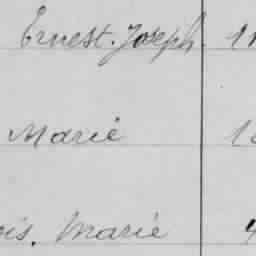 Ernest. Joseph
Marie
Marie